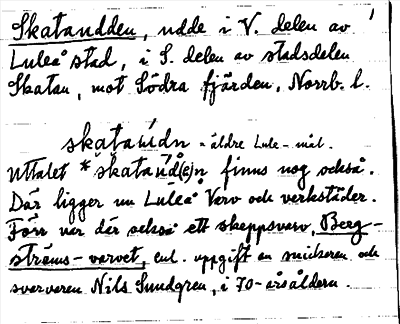 1
Skatandden, udde i V. delen av
Luleå stad, i S. delen av stadsdelen
Skatan, mot Södra fjärden, Norrb. l.
skatau̍dn - äldre Lule-mål.
Uttalet *skatau̍d(e)n finns nog också.
Där ligger nu Luleå Varv och verkstäder.
Förr var där också ett skeppsvarv, Berg-
ströms-varvet, enl. uppgift en snickaren och
svarvaren Nils Sundgren, i 70-årsåldern.